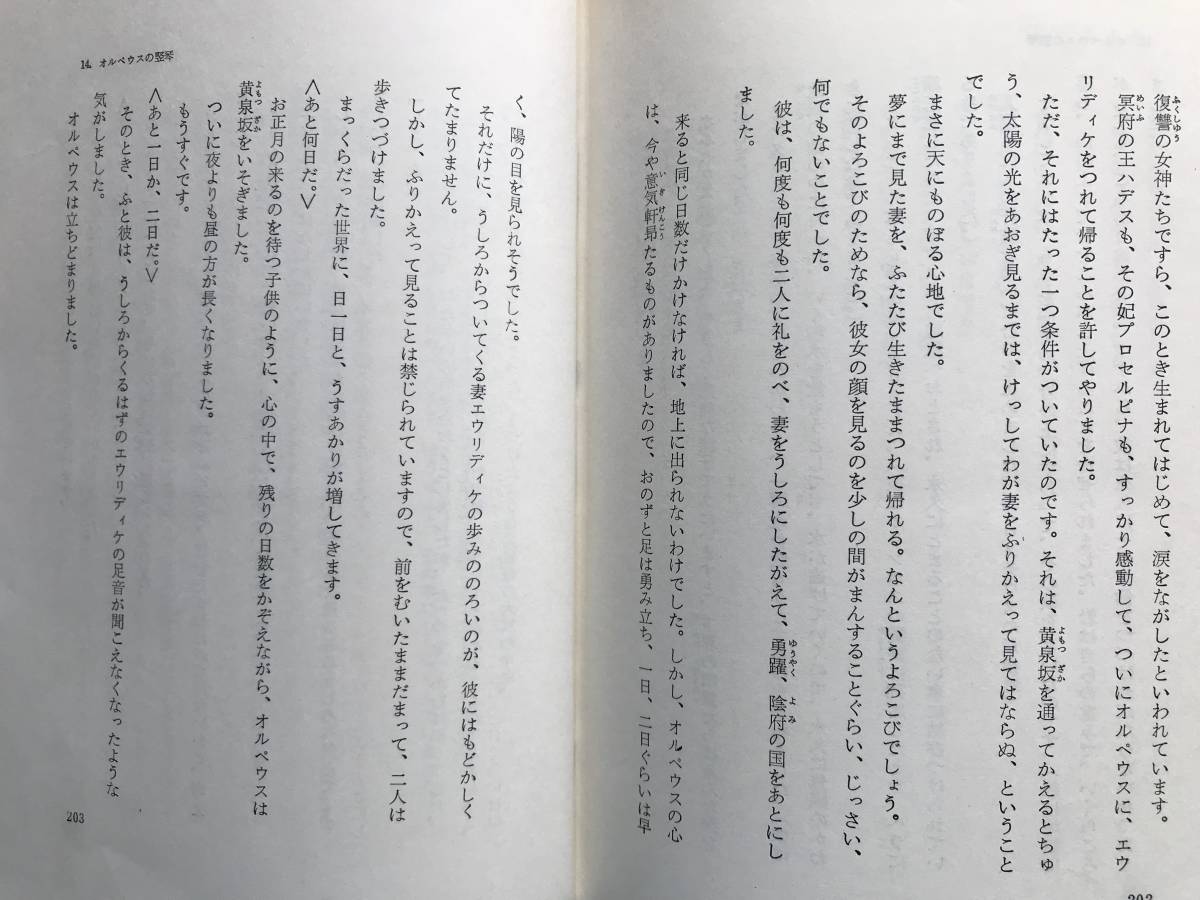 復讐の女神たちですら、このとき生まれてはじめて、涙をながしたといわれています。
冥府の王ハデスも、その妃プロセルピナも、すっかり感動して、ついにオルペウスに、エウ
リディケをつれて帰ることを許してやりました。
ただ、それにはたった一つ条件がついていたのです。それは、黄泉坂を通ってかえるとちゅ
う、太陽の光をあおぎ見るまでは、けっしてわが妻をふりかえって見てはならぬ、ということ
でした。
まさに天にものぼる心地でした。
夢にまで見た妻を、ふたたび生きたままつれて帰れる。なんというよろこびでしょう。
そのよろこびのためなら、彼女の顔を見るのを少しの間がまんすることぐらい、じっさい、
何でもないことでした。
彼は、何度も何度も二人に礼をのべ、妻をうしろにしたがえて、勇躍、陰府の国をあとにし
ました。
来ると同じ日数だけかけなければ、地上に出られないわけでした。しかし、オルペウスの心
は、今や意気軒昂たるものがありましたので、おのずと足は勇み立ち、一日、二日ぐらいは早
202
14. オルペウスの竪琴
く、陽の目を見られそうでした。
それだけに、うしろからついてくる妻エウリディケの歩みののろいのが、彼にはもどかしく
てたまりません。
しかし、ふりかえって見ることは禁じられていますので、前をむいたままだまって、二人は
歩きつづけました。
まっくらだった世界に、日一日と、うすあかりが増してきます。
〈あと何日だ。〉
お正月の来るのを待つ子供のように、心の中で、残りの日数をかぞえながら、オルペウスは
黄泉坂をいそぎました。
ついに夜よりも昼の方が長くなりました。
もうすぐです。
〈あと一日か、二日だ。〉
そのとき、ふと彼は、うしろからくるはずのエウリディケの足音が聞こえなくなったような
気がしました。
オルペウスは立ちどまりました。
203